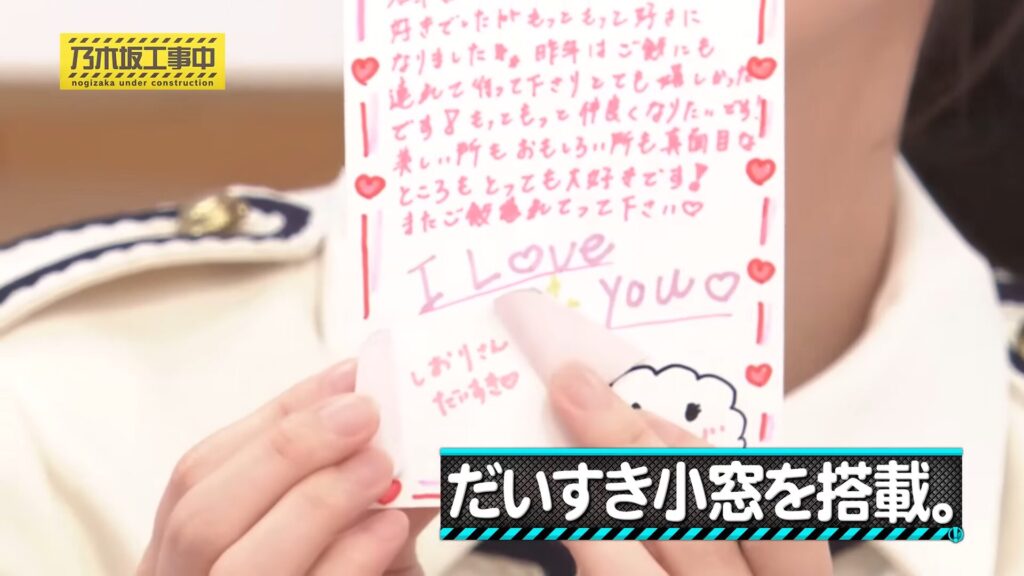 乃木坂工事中
nogizaka under construction
好きでしたが もっともっと好きに
なりました!! 昨年はご飯にも
連れて行って下さりとても嬉しかった
です! もっともっと仲良くなりたいです!
美しい所も おもしろい所も 真面目な
ところもとっても大好きです!
またご飯 連れてって下さい♡
I Love
you♡
しおりさん
だいすき♡
だいすき小窓を搭載。